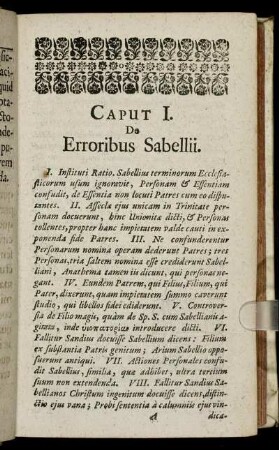 CAPUT I.
De
Erroribus Sabellii.
I. Instituti Ratio. Sabellius terminorum Ecclesia-
sticorum usum ignoravit, Personam & Essentiam
confudit, de Essentia non locuti Patres cum eo dispu-
tantes. II. Assecla ejus unicam in Trinitate per-
sonam docuerunt, hinc Unionita dicti, & Personas
tollentes, propter hanc impietatem valde cauti in ex-
ponenda fide Patres. III. Ne confunderentur
Personarum nomina operam dederunt Patres; tres
Personas, tria saltem nomina esse crediderunt Sabel-
liani, Anathema tamen iis dicunt, qui personas ne-
gant. IV. Eundem Patrem, qui Filius, Filium, qui
Pater, dixerunt, quam impietatem summo caverunt
studio, qui libellos fidei celarunt. V. Controver-
sia de Filio magis, quàm de Sp. S. cum Sabellianis a-
gitata, inde ὑιοπατορίας introducere dicti. VI.
Fallitur Sandius docuisse Sabellium dicens; Filium
ex substantia Patris genitum; Arium Sabellio oppo-
suerunt antiqui. VII. Actiones Personales confu-
dit Sabellius, similia, quæ adhibet, ultra tertium
suum non extendenda. VIII. Fallitur Sandius Sa-
bellianos Christum ingenitum docuisse dicens, distin-
ctio ejus vana; Probi sententia à calumniis ejus vin-
dica-